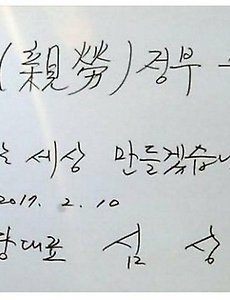 (親勞) 정부
세상 만들겠습니
2017. 2. 10
당대표 심 상